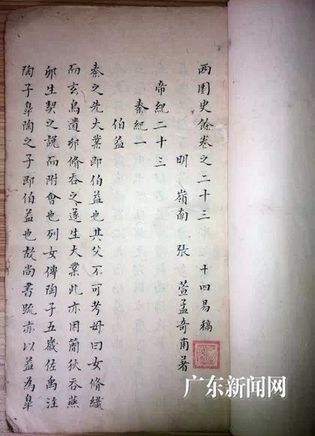 西園史餘卷之二十三　十四易稿
明　嶺南　張　萱孟奇甫著
帝紀二十三
秦紀一
伯益
秦之先大業即伯益也其父不可考母曰女脩織
而玄鳥遺卵脩吞之遂生大業此亦因簡狄吞燕
卵生契之說而附會也列女傳陶子五歲佐禹注
陶子臯陶之子即伯益也故尚書疏亦以益為臯
广东新闻网